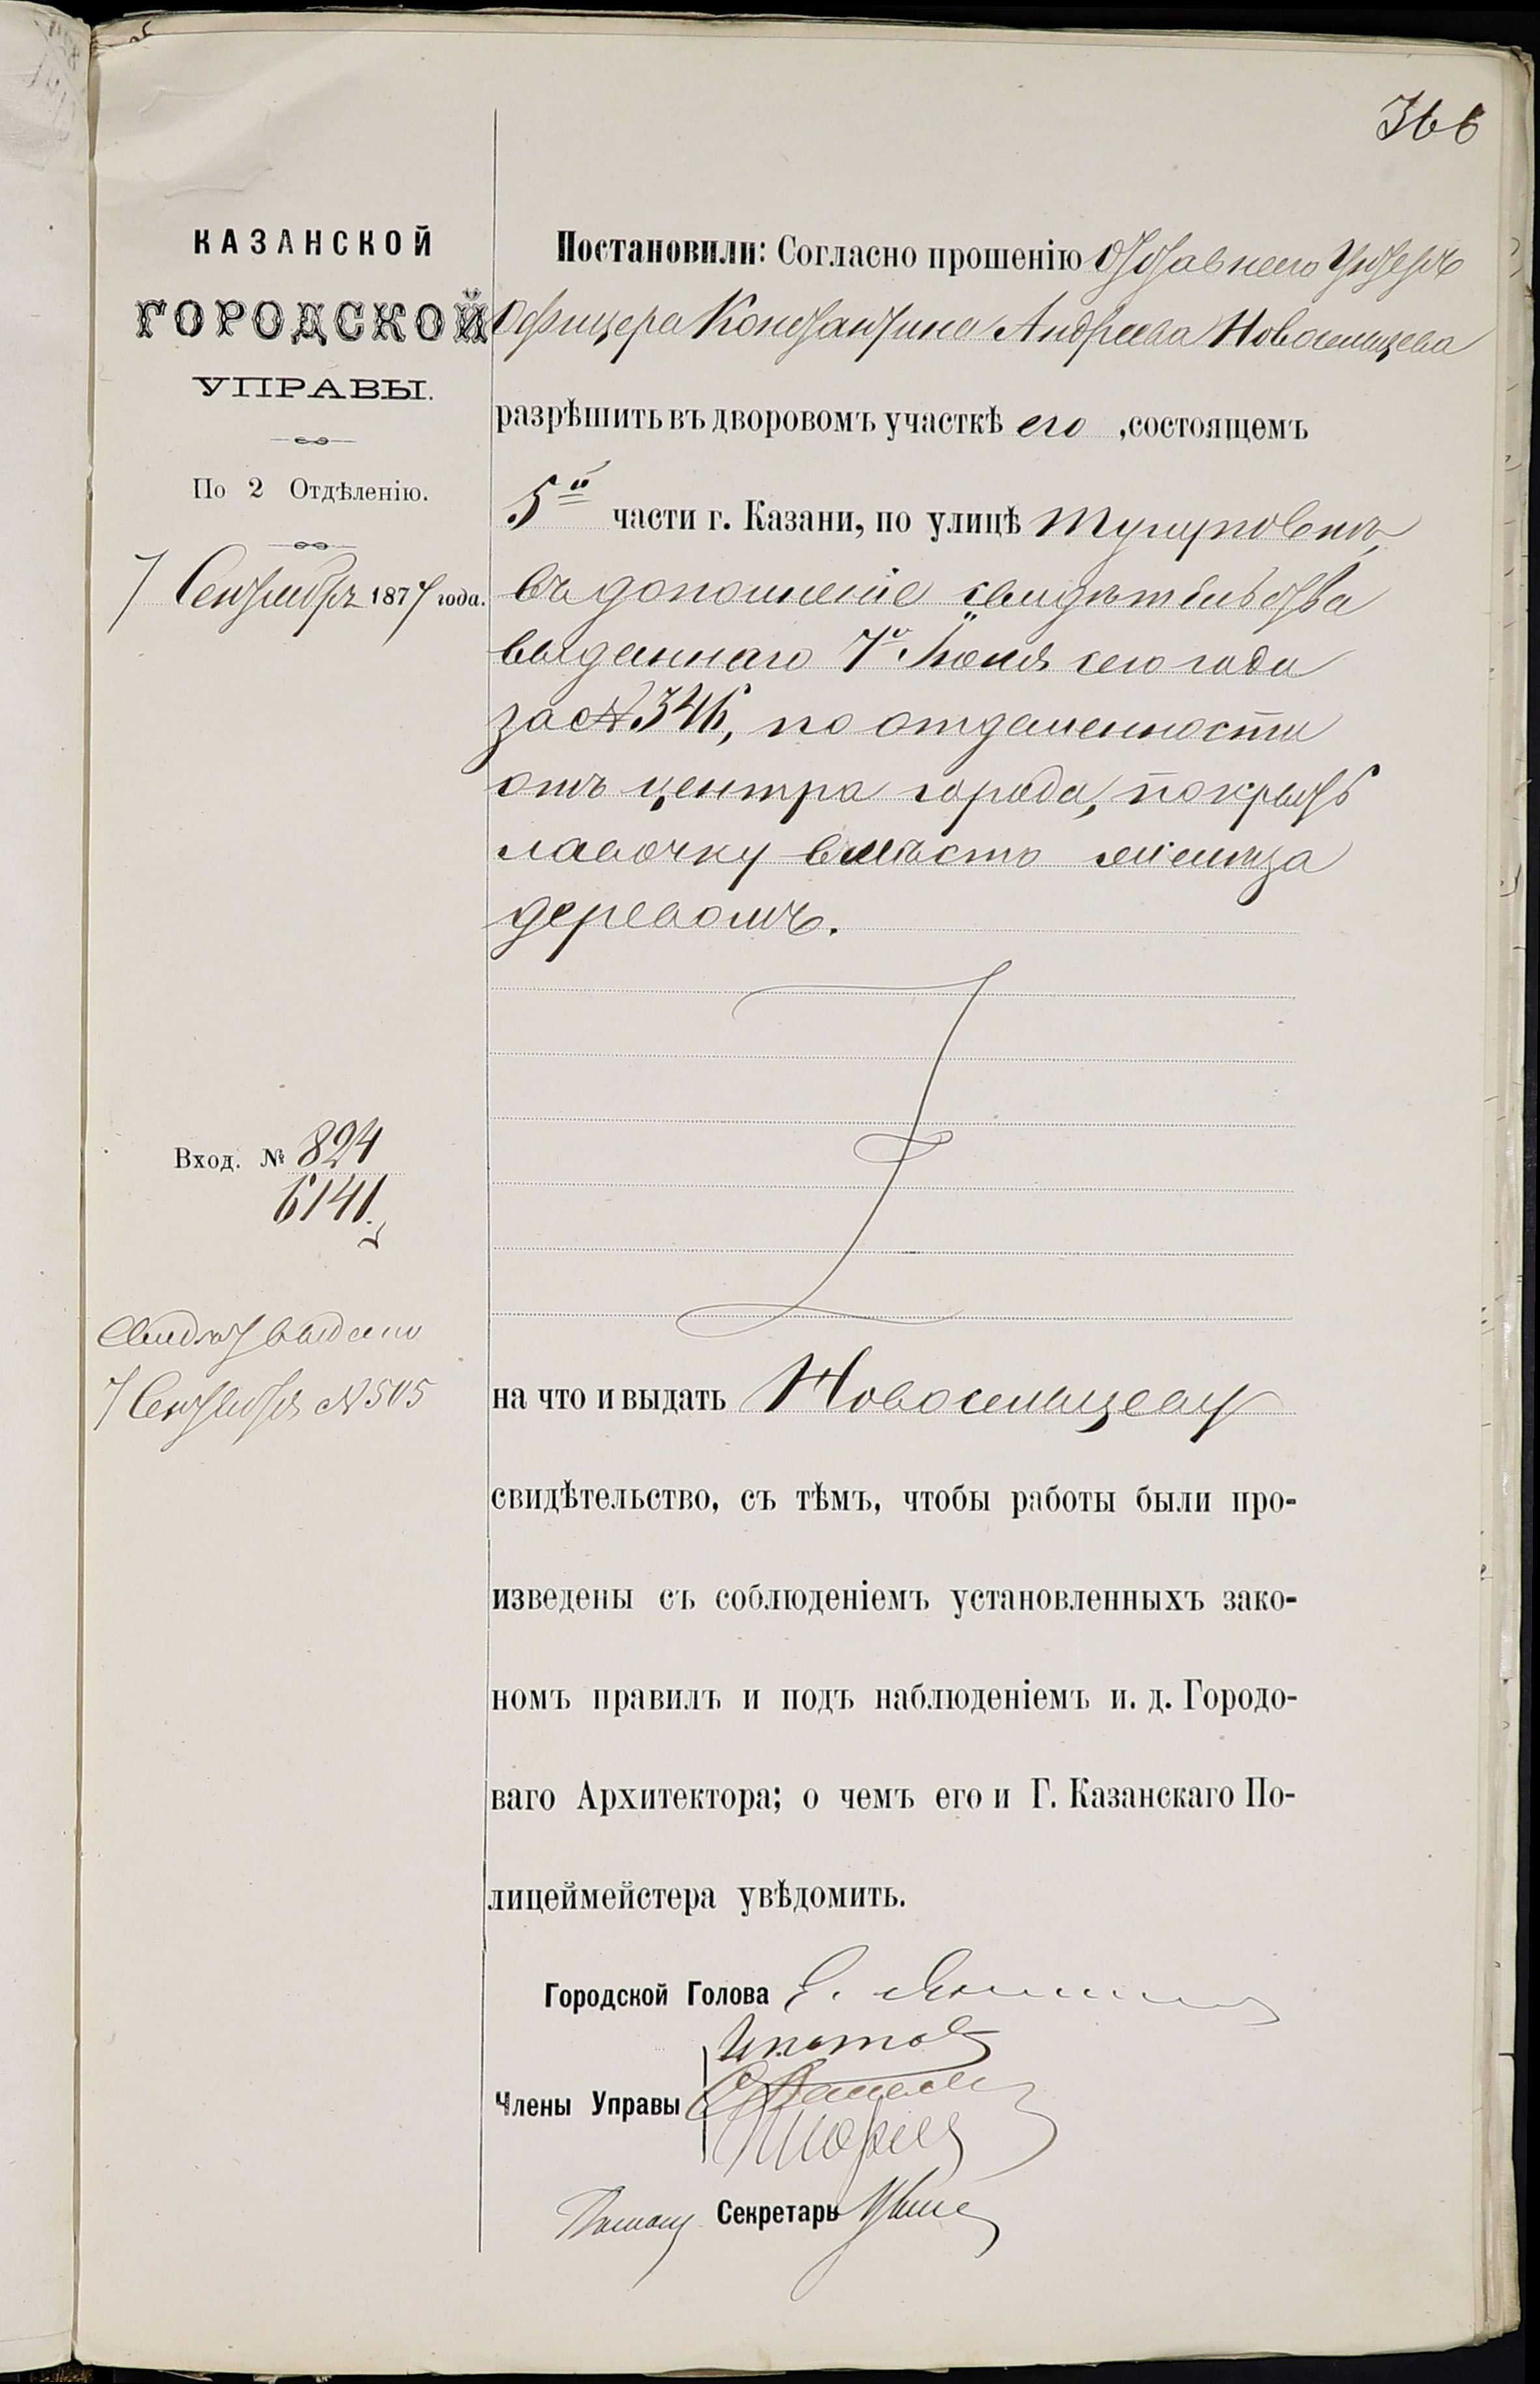 366
КАЗАНСКОЙ
ГОРОДСКОЙ
УПРАВЫ.
По 2 Отдѣленію.
7 Сентября 1877 года.
Вход. № 824
6141.
Свидѣт выдано
7 Сентября № 505
Постановили: Согласно прошенію отставнаго Унтеръ
Офицера Константина Андреева Новосельцева
разрѣшить въ дворовомъ участкѣ его, состоящемъ
5й части г. Казани, по улицѣ
въ дополненіе свидѣтельства
выданнаго 7го Іюня сего года
за № 346, по отдаленности
отъ центра города, покрыть
лавочку вмѣсто желѣза
деревомъ.
на что и выдать Новосельцеву
свидѣтельство, съ тѣмъ, чтобы работы были про-
изведены съ соблюденіемъ установленныхъ зако-
номъ правилъ и подъ наблюденіемъ и. д. Городо-
ваго Архитектора; о чемъ его и Г. Казанскаго По-
лицеймейстера увѣдомить.
Городской Голова
Члены Управы
Секретарь